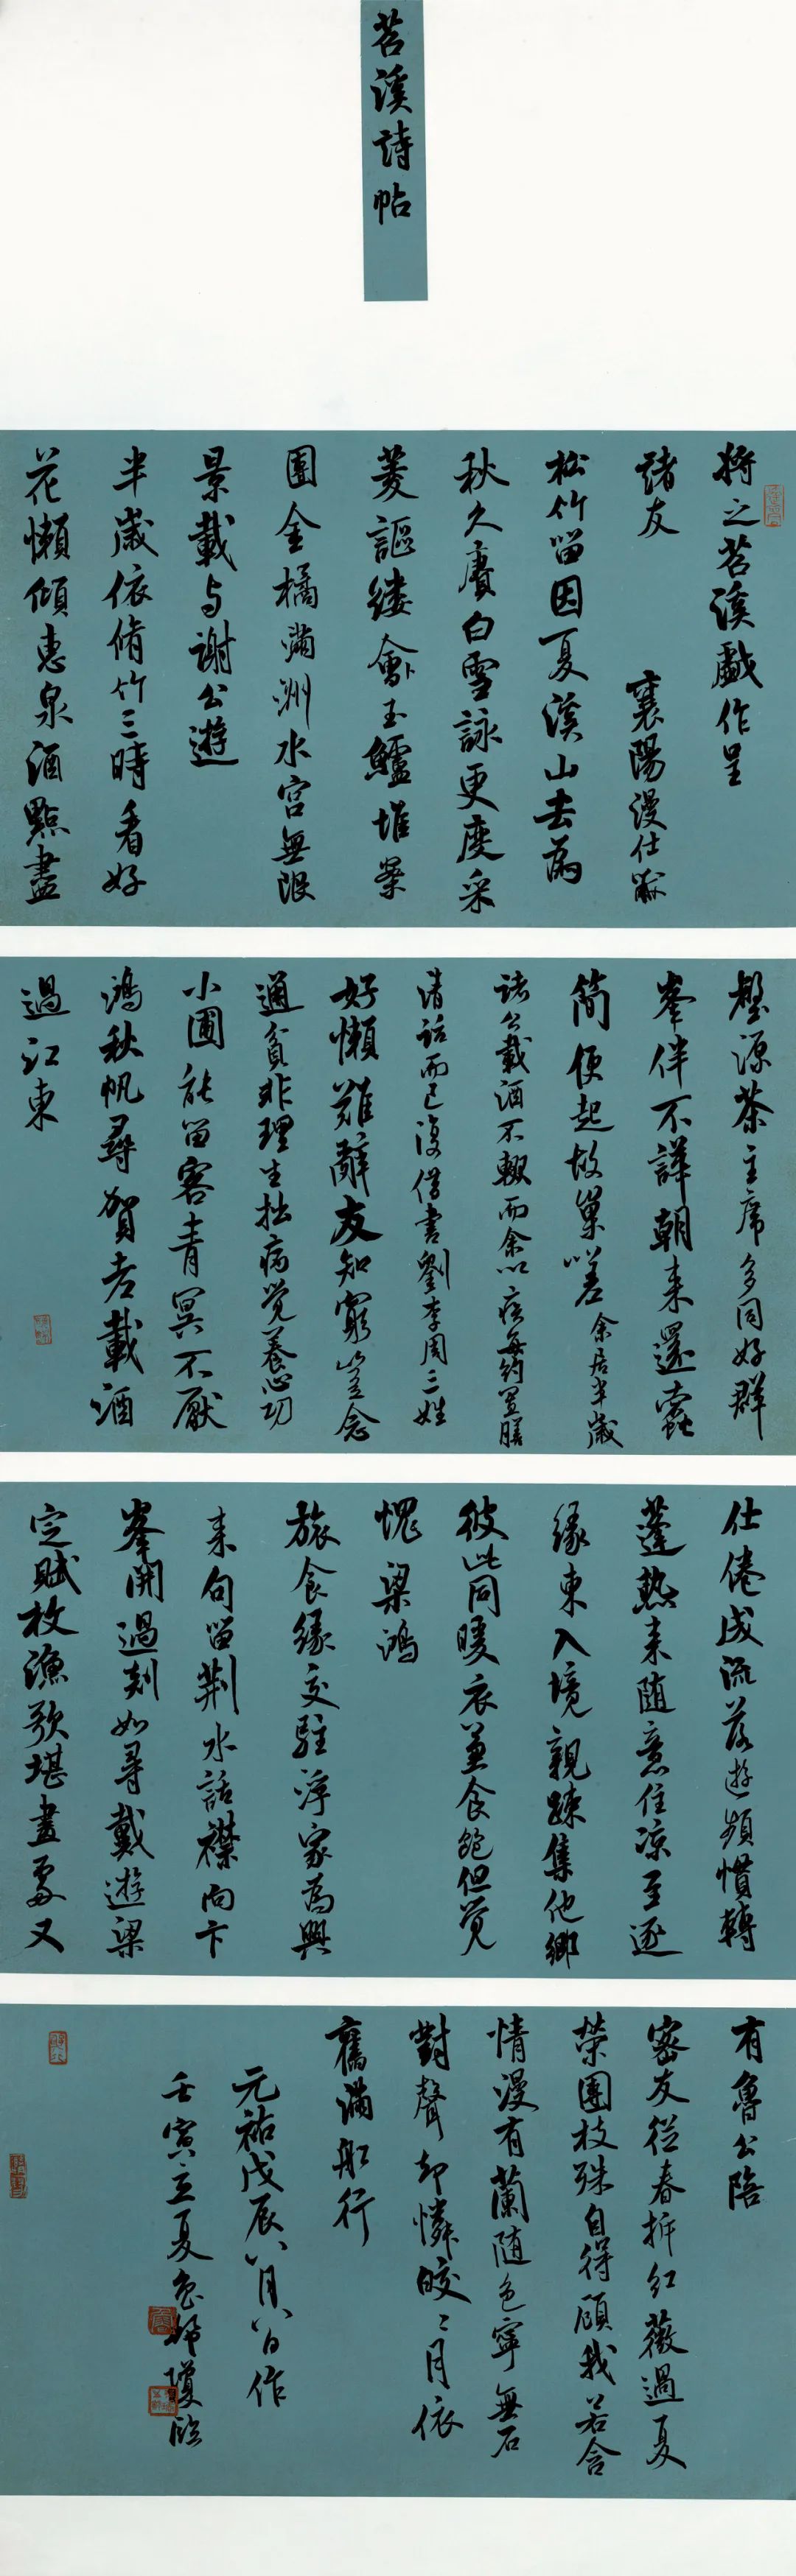 苕溪詩帖
將之苕溪戲作呈
諸友
襄陽漫仕黻
松竹留因夏溪山去為
秋久賡白雪詠更度采
菱謳縷鱠玉鱸堆案
團金橘滿洲水宮無限
景載与謝公遊
半歲依脩竹三時看好
花懶傾惠泉酒點盡
壑源茶主席多同好群
峯伴不譁朝来還蠹
簡便起故巢嗟余居半歲
諸公載酒不輟而余以疾每約置膳
清話而已復借書劉李周三姓
好懶難辭友知窮豈念
通貧非理生拙病覺養心功
小圃能留客青冥不厭
鴻秋帆尋賀老載酒
過江東
仕倦成流落遊頻慣轉
蓬熱来随意住涼至逐
緣東入境親疎集他鄉
彼此同暖衣兼食飽但覺
愧梁鴻
旅食緣交駐浮家為興
来句留荆水話襟向卞
峯開過剡如尋戴遊梁
定賦枚漁歌堪畫處又
有魯公陪
密友從春拆紅薇過夏
榮團枝殊自得顧我若含
情漫有蘭随色寧無石
對聲却憐皎〻月依
舊滿舡行
元祐戊辰八月八日作
壬寅立夏
瓊臨